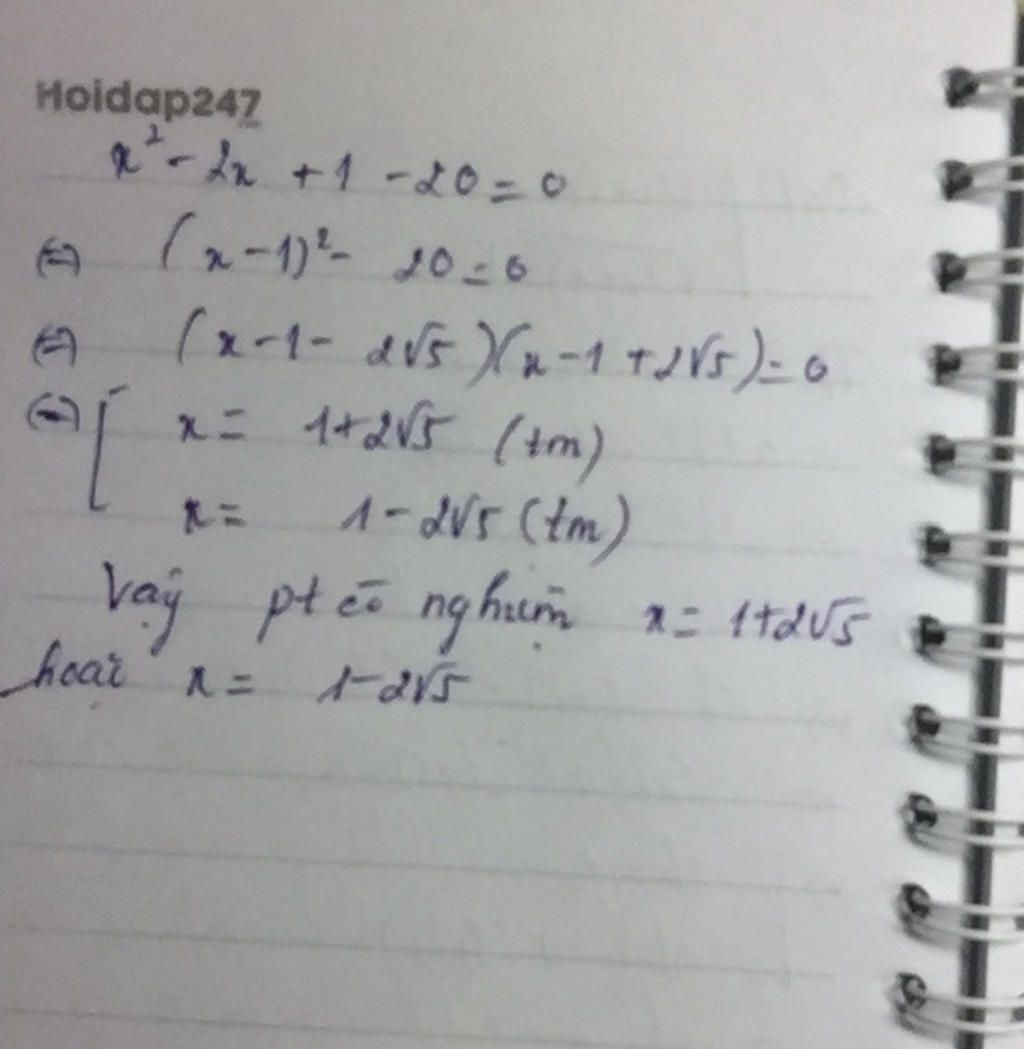 Hoidap247
x² - 2x + 1 - 20 = 0
(=) (x - 1)² - 20 = 0
(=) (x - 1 - 2√5)(x - 1 + 2√5) = 0
(=) [ x = 1 + 2√5 (tm)
x = 1 - 2√5 (tm)
Vậy pt có nghiệm x = 1 + 2√5
hoặc x = 1 - 2√5